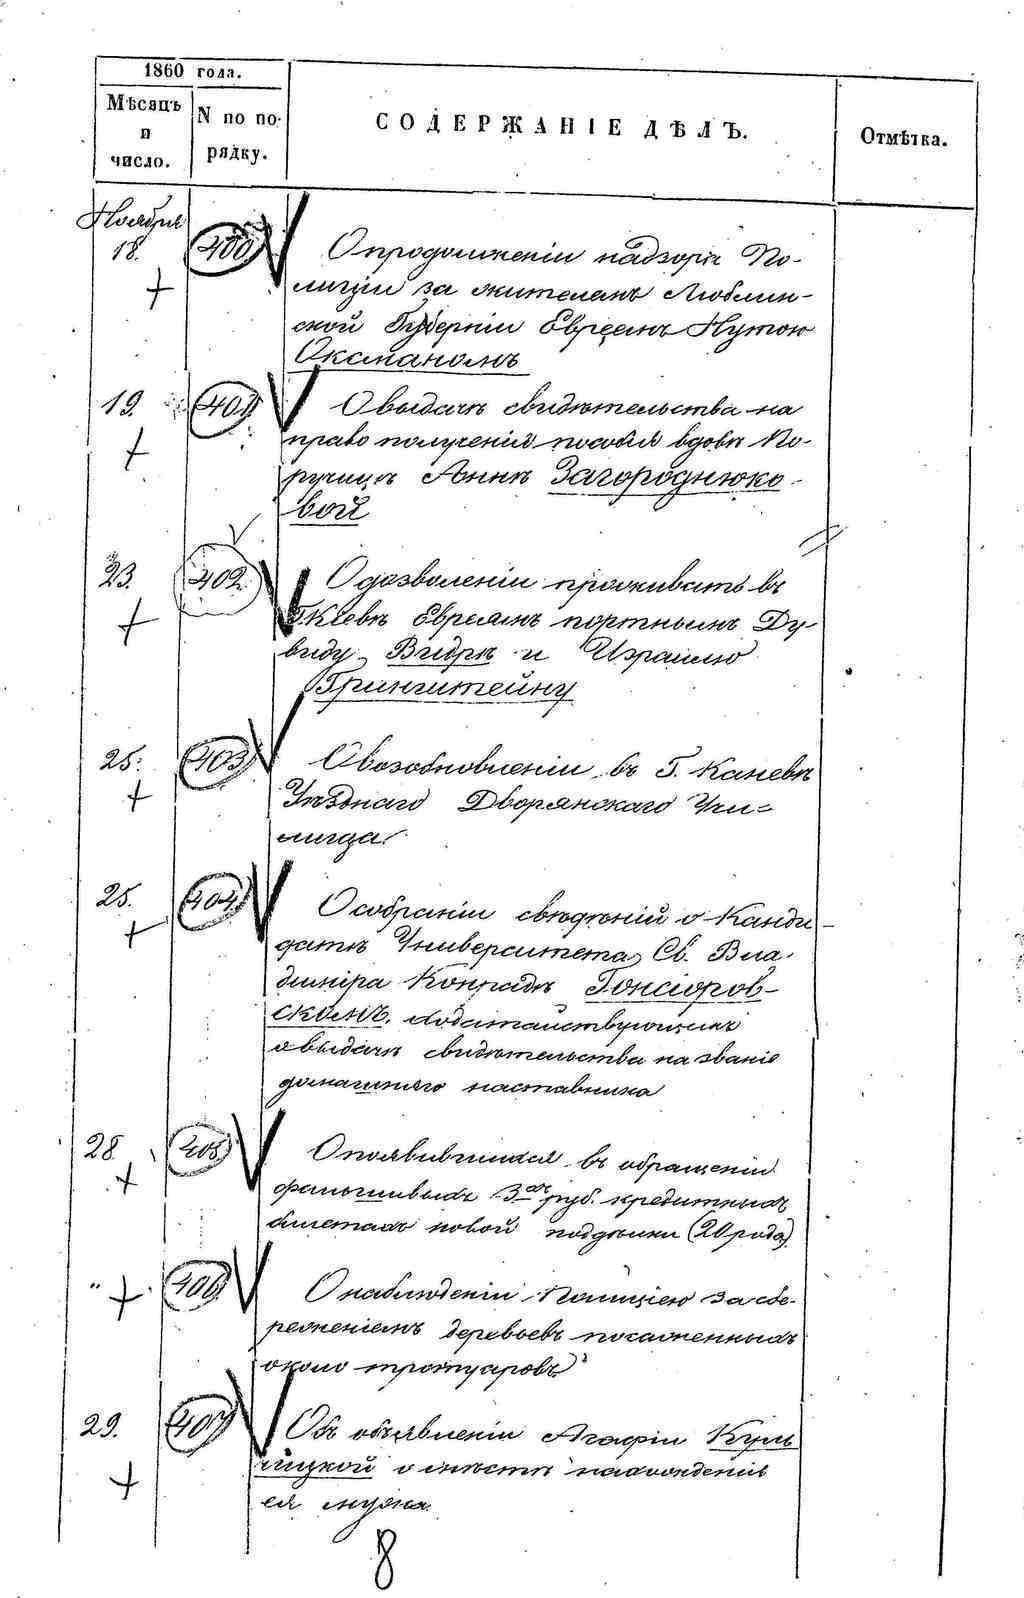 1860 года.
Мѣсяцъ и число.
N по порядку.
СОДЕРЖАНІЕ ДѢЛЪ.
Отмѣтка.
Ноября
18. 400 О продолженіи надзора По-
лиціи за жителемъ Люблин-
ской Губерніи Евреемъ Нутою
Оксманомъ
19. 401 О выдачѣ свидѣтельства на
право полученія пособія вдовѣ По-
ручика Аннѣ Загороднюко-
вой
23. 402 О дозволеніи проживать въ
Г. Кіевѣ Евреямъ портнымъ Ду-
виду Видрѣ и Израилю
Гринштейну
25. 403 О возобновленіи въ Г. Каневѣ
Уѣзднаго Дворянскаго Учи-
лища.
25. 404 О собраніи свѣдѣній о Канди-
датѣ Университета Св. Вла-
диміра Конрадѣ Гонсіоров-
скомъ, ходатайствующемъ
о выдачѣ свидѣтельства на званіе
домашняго наставника
28 405 О появившихся въ обращеніи
фальшивыхъ 3хъ руб. кредитныхъ
билетахъ новой поддѣлки (20 рода).
" 406 О наблюденіи Полиціею за сбе-
реженіемъ деревьевъ посаженныхъ
около тротуаровъ
29. 407 Объ объявленіи Агафіи Куль-
чицкой о мѣстѣ нахожденія
ея мужа.
8